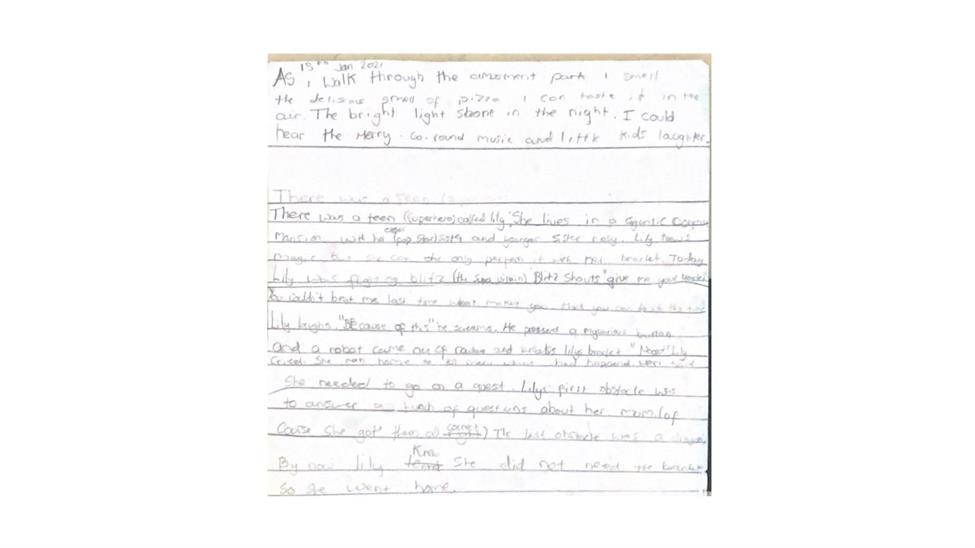 15th Jan 2021
As i walk through the amsoment park i smell
the delisious smell of pizza i can taste it in the
air. The bright light shone in the night. I could
hear the Merry-Go-round music and little kids laughter.
There was a teen
There was a teen (superhero) called lily. She lives in a gigantic
mansion with her (pop star) sister and younger sister rosy. Lily
magic but she can only perform it with her braclet. Today
Lily was fighing blitz (the Supa vilain) Blitz shouts "give me your braclet
You couldn't beat me last time what makes you think you can do it this time
Lily laughs. "BEcause of this" he screams. He pressed a button
and a robot came out of and braclet "Nooo" lily
cried. She ran home to what had
She needed to go on a quest. Lilys first obstacle was
to answer a bunch of questions about her mum. (of
course she got them all correct) The last obstacle was a
By now lily She did not need the braclet
So she went home.